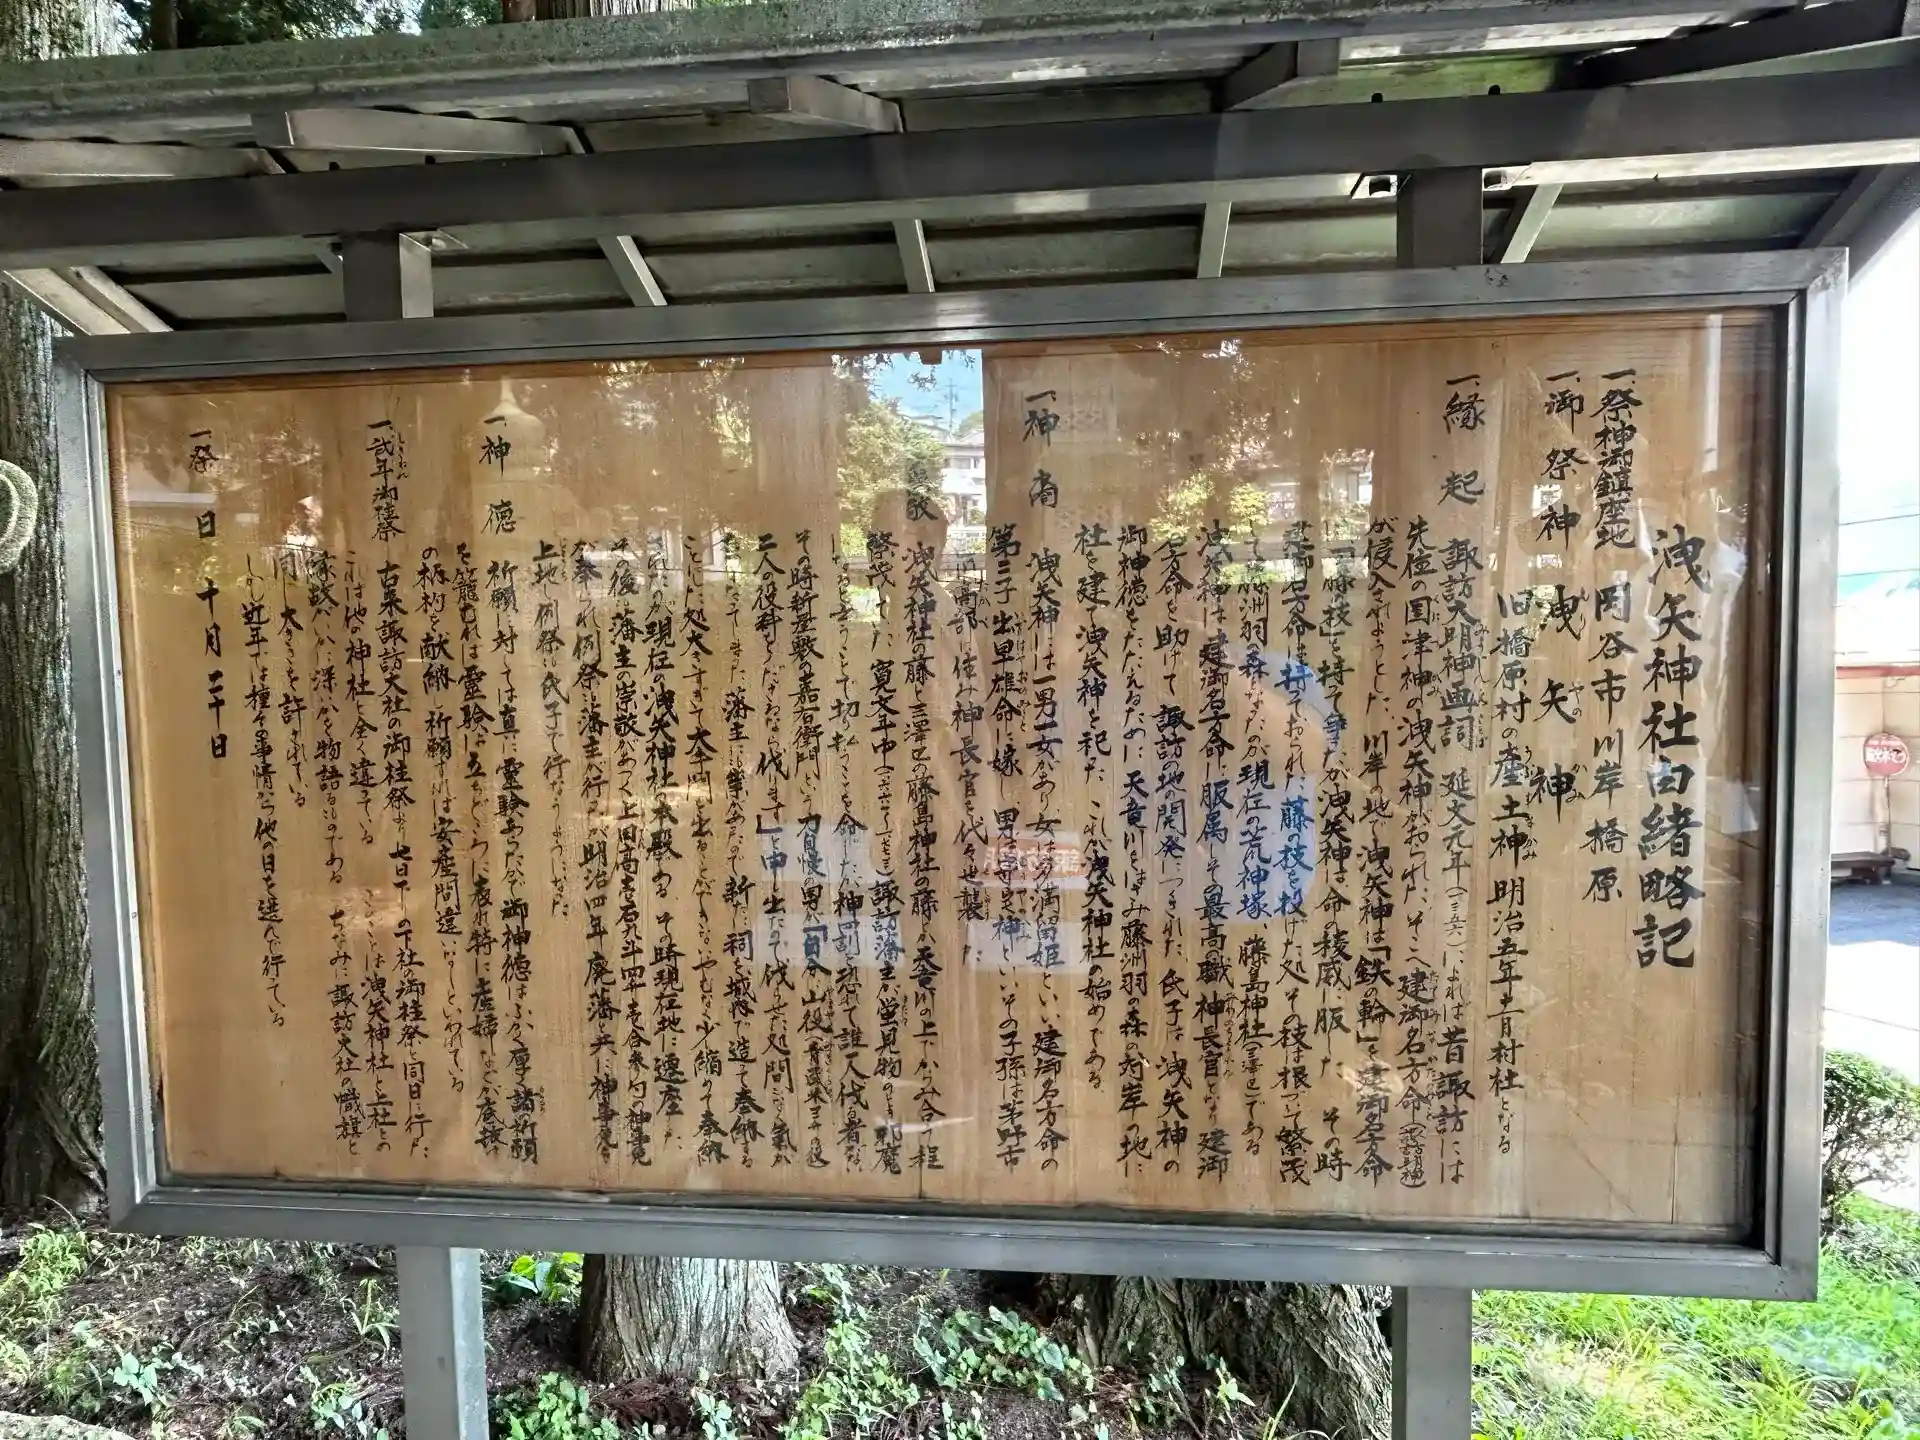 洩矢神社由緒略記
一、祭神御鎮座地 岡谷市川岸橋原
一、御祭神 洩矢神
もり やの かみ
旧橋原村の産土神 明治五年十一月村社となる
一、縁起 諏訪大明神画詞 延文元年(一三五六)によれば昔諏訪には
先住の国津神の洩矢神がおられた。そこへ建御名方命(諏訪明神)
が侵入されようとした。川岸の地で洩矢神は「鉄の輪」を建御名方命
は「藤枝」を持って争ったが洩矢神は命の稜威に服した その時
建御名方命は持っておられた藤の枝を投げた処 その枝は根づいて繁茂
して藤洲羽の森となったのが現在の荒神塚、藤島神社(三澤区)である
洩矢神は建御名方命に服属しその最高の職神長官となり建御
名方命を助けて諏訪の地の開発につくされた 氏子は洩矢神の
御神徳をたたえるために天竜川をはさみ藤洲羽の森の対岸の地に
社を建て洩矢神を祀った これが洩矢神社の始めである
一、神裔 洩矢神には一男一女があり女は多満留姫といい建御名方命の
第三子出早雄命に嫁し 男は守宅神といいその子孫は茅野市
旧高部に住み神長官を代々世襲した
敬 洩矢神社の藤と三澤区の藤島神社の藤とが天竜川の上でからみ合う程
繁茂していた 寛文年中 諏訪藩主が蛍見物のとき邪魔
になると云うことで切る事を命じたが神罰を恐れて誰一人伐る者なし
その時新屋敷の嘉右衛門という力自慢の男が「自分の山役
二人の役料をくださるなら伐ります」と申し出たので伐らせた処
藩主に 新たに祠を城内で造って奉納する
ことにした処大きすぎて大手門を出ることができないやむなく少し縮めて奉納
されたのが現在の洩矢神社の本殿である その時現在地に遷座した
その後も藩主の崇敬があつく上田高壱石九斗四升壱合参勺の神事免
が奉られ例祭は藩主が行ったが明治四年廃藩と共に神事免も
上地し例祭も氏子で行なうようになった
一、神徳 祈願に対しては真に霊験あらたかで御神徳はふかく厚く諸の祈願
を籠むれば霊験は立ちどころに表れ特に産婦などが底抜け
の柄杓を献納し祈願すれば安産間違いなしといわれている
一、式年御柱祭 古来諏訪大社の御柱祭より七日下りの下社の御柱祭と同日に行った
しきねん
これは他の神社と全く違っている このことは洩矢神社と上社との
縁故がいかに深いかを物語るものである ちなみに諏訪大社の幟旗と
同じ大きさも許されている
しかし近年では種々の事情から他の日を選んで行っている
一、祭日 十月二十日